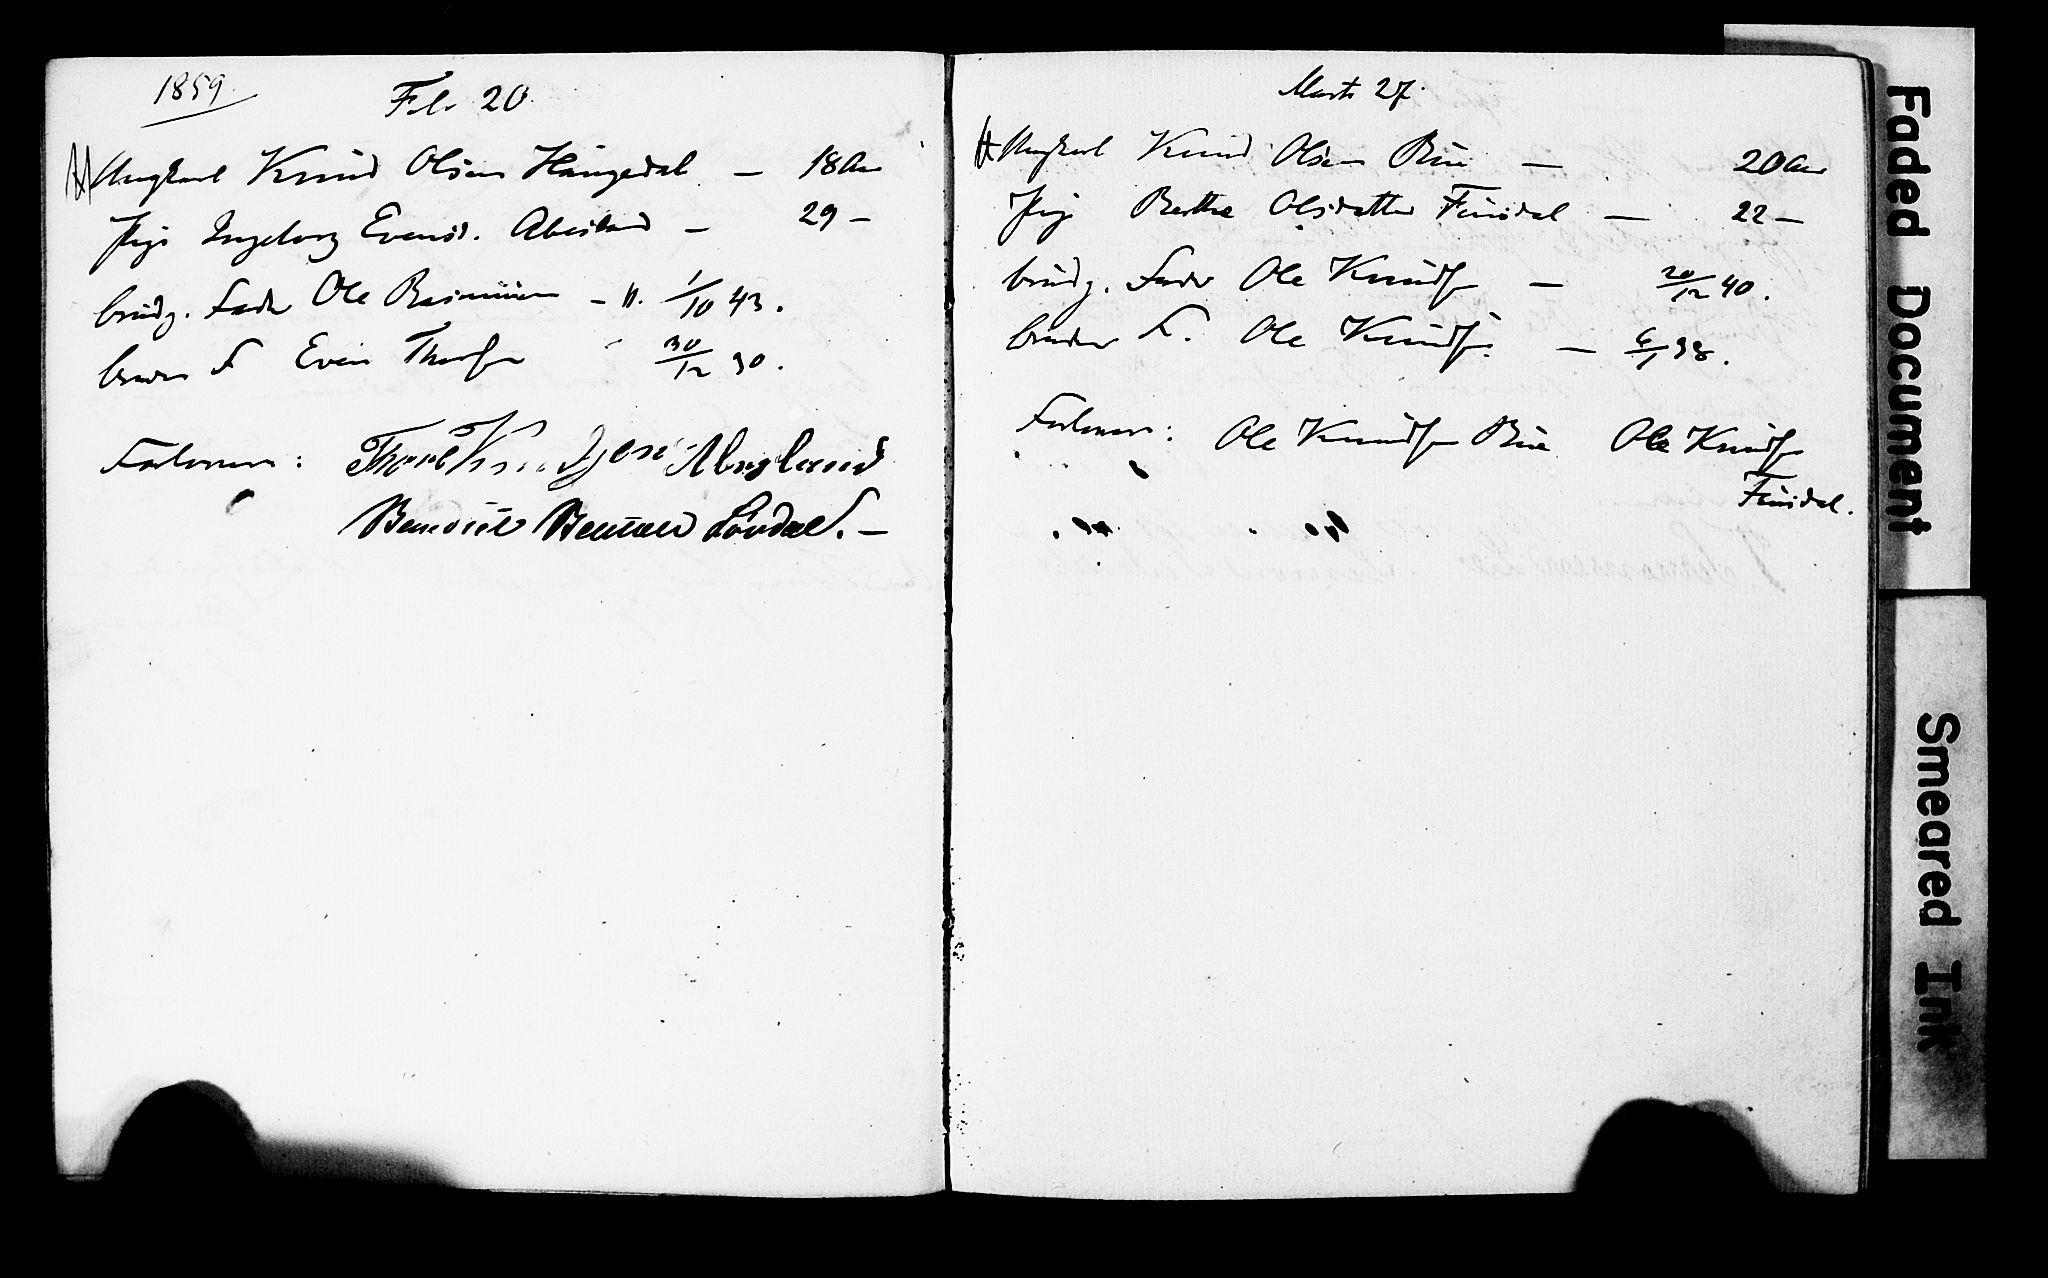 1859.
Feb 20.
Ungkarl Knud Olsen Haugedal — 18 Aar
Pige Ingeborg Evensd. Abesland — 29 —
brudg. Fader Ole Rasmusen — n. 1/10 43.
bruden F Even Thorsen 30/12 30.
Forlovere :
Løvdal. —
Marts 27.
Ungkarl Knud Olsen Bue — 20 Aar
Pige Berthe Olsdatter Finsdal — 22 —
brudg. Fader Ole Knudsen — 20/12 40.
bruden F. Ole Knudsen — 6/1 38.
Forlovere : Ole Knudsen Bue Ole Knudsen
Finsdal.
Faded Document
Smeared Ink